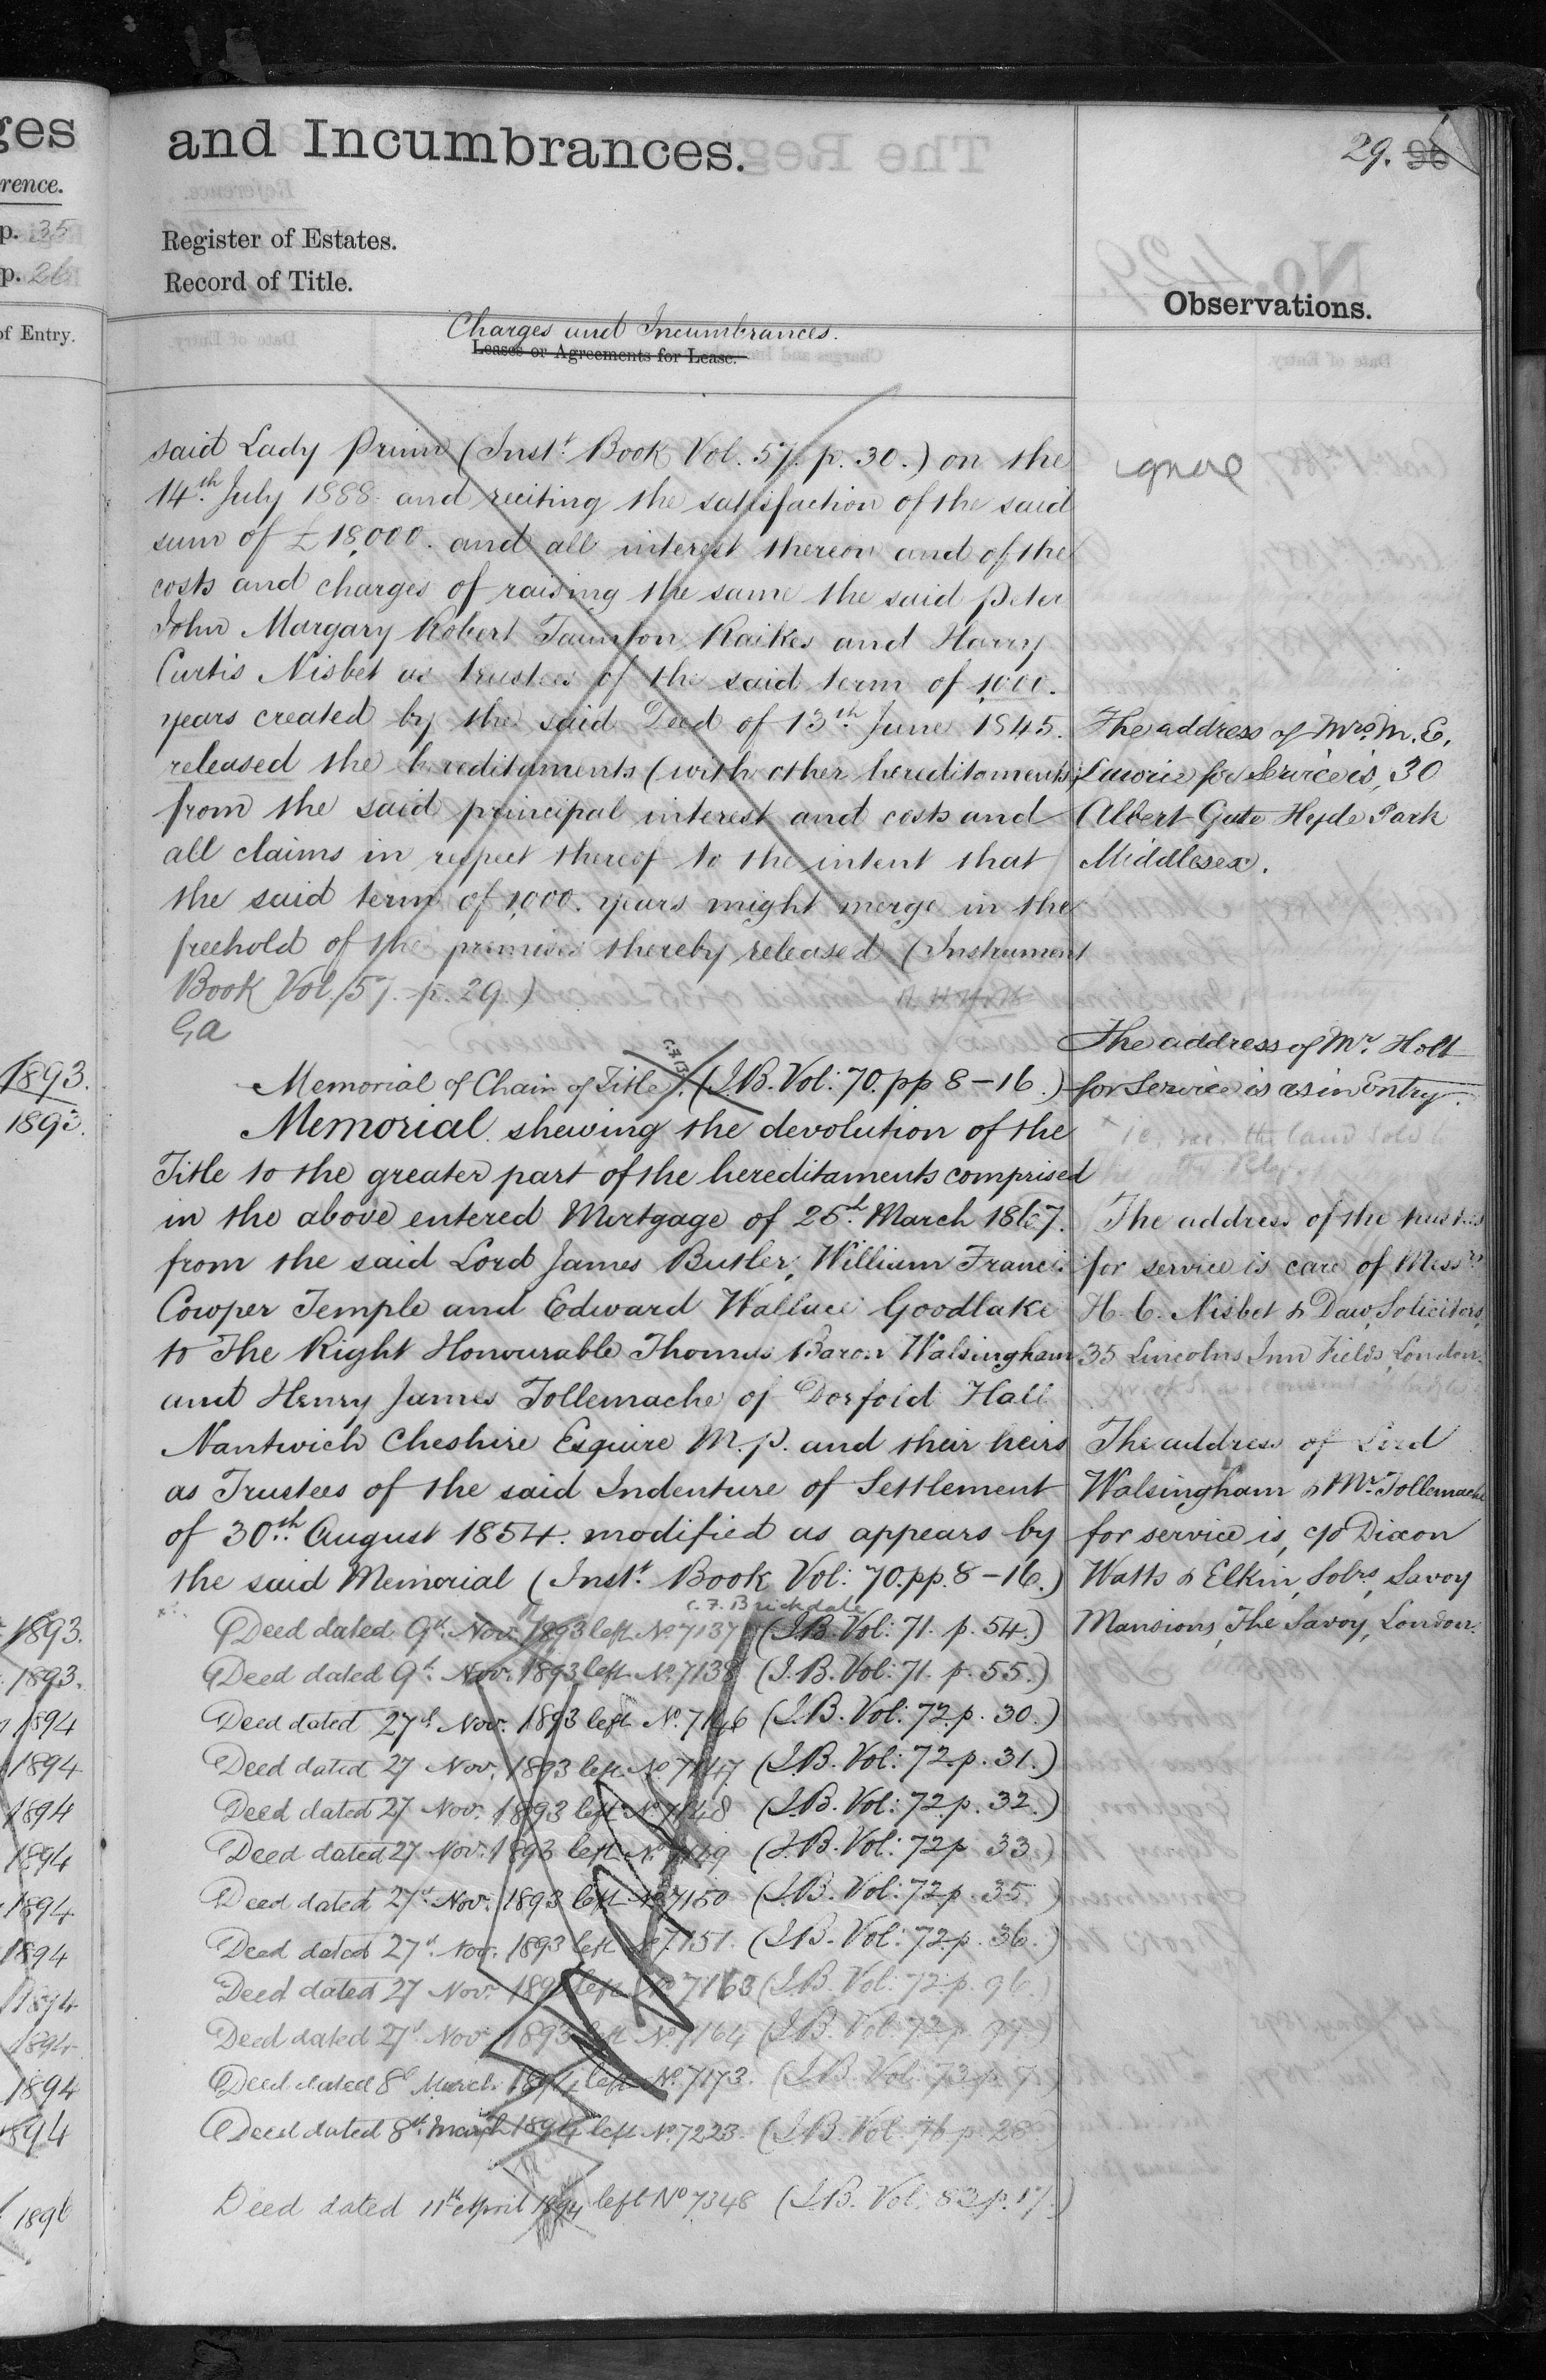 ges
and Incumbrances.
29. 96
rence.
p. 35
p. 26
Register of Estates.
Record of Title.
Observations.
of Entry.
Charges and Incumbrances.
Leases or Agreements for Lease.
said Lady Prinn (Inst.t Book Vol. 57. p. 30.) on the
14.th July 1888 and reciting the satisfaction of the said
sum of £18,000. and all interest thereon and of the
costs and charges of raising the same the said Peter
John Margary Robert Taunton Raikes and Harry
Curtis Nisbet as trustees of the said term of 1,000.
years created by the said Deed of 13th June 1845.
released the hereditaments (with other hereditaments)
from the said principal interest and costs and
all claims in respect thereof to the intent that
the said term of 1,000. years might merge in the
freehold of the premises thereby released (Instrument
Book Vol. 57. p. 29.)
Ga
1893.
1893.
Memorial of Chain of Title. (I.B. Vol: 70. pp 8-16.)
Memorial shewing the devolution of the
Title to the greater part of the hereditaments comprised
in the above entered Mortgage of 25th March 1867.
from the said Lord James Butler, William Francis
Cowper Temple and Edward Wallace Goodlake
to The Right Honourable Thomas Baron Walsingham
and Henry James Tollemache of Dorfold Hall
Nantwich Cheshire Esquire M.P. and their heirs
as Trustees of the said Indenture of Settlement
of 30.th August 1854. modified as appears by
the said Memorial (Inst.t Book Vol: 70. pp. 8-16.)
C. F. Brickdale
1893. Deed dated 9th Nov. 1893 left No. 7137 (I.B. Vol: 71. p. 54.)
1893. Deed dated 9th Nov. 1893 left No. 7138 (I.B. Vol: 71. p. 55.)
1894 Deed dated 27th Nov. 1893 left No. 7146 (I.B. Vol: 72. p. 30.)
1894 Deed dated 27 Nov. 1893 left No. 7147 (I.B. Vol: 72. p. 31.)
1894 Deed dated 27 Nov. 1893 left No. 7148 (I.B. Vol: 72. p. 32.)
1894 Deed dated 27 Nov. 1893 left No. 7149 (I.B. Vol: 72 p. 33.)
1894 Deed dated 27th Nov. 1893 left No. 7150 (I.B. Vol: 72 p. 35.)
1894 Deed dated 27th Nov. 1893 left No. 7151. (I.B. Vol: 72. p. 36.)
1894 Deed dated 27 Nov. 1893 left No. 7163 (I.B. Vol: 72. p. 96.)
1894 Deed dated 27th Nov. 1893 left No. 7164 (I.B. Vol: 72 p. 97.)
1894 Deed dated 8th March 1894 left No. 7173. (I.B. Vol: 73 p. 7.)
1894 Deed dated 8th March 1894 left No. 7223. (I.B. Vol: 76 p. 28)
1896 Deed dated 11th April 1894 left No 7348 (I.B. Vol. 83 p. 17.)
ignore
The address of Mrs. M. E.
Lawrie for Service is, 30
Albert Gate Hyde Park
Middlesex.
The address of Mr. Holt
for Service is as in Entry.
The address of the trustees
for service is care of Messrs
H. C. Nisbet & Daw, Solicitors,
35 Lincolns Inn Fields, London.
The address of Lord
Walsingham & Mr. Tollemache
for service is, c/o Dixon
Watts & Elkin, Solrs, Savoy
Mansions, The Savoy, London.